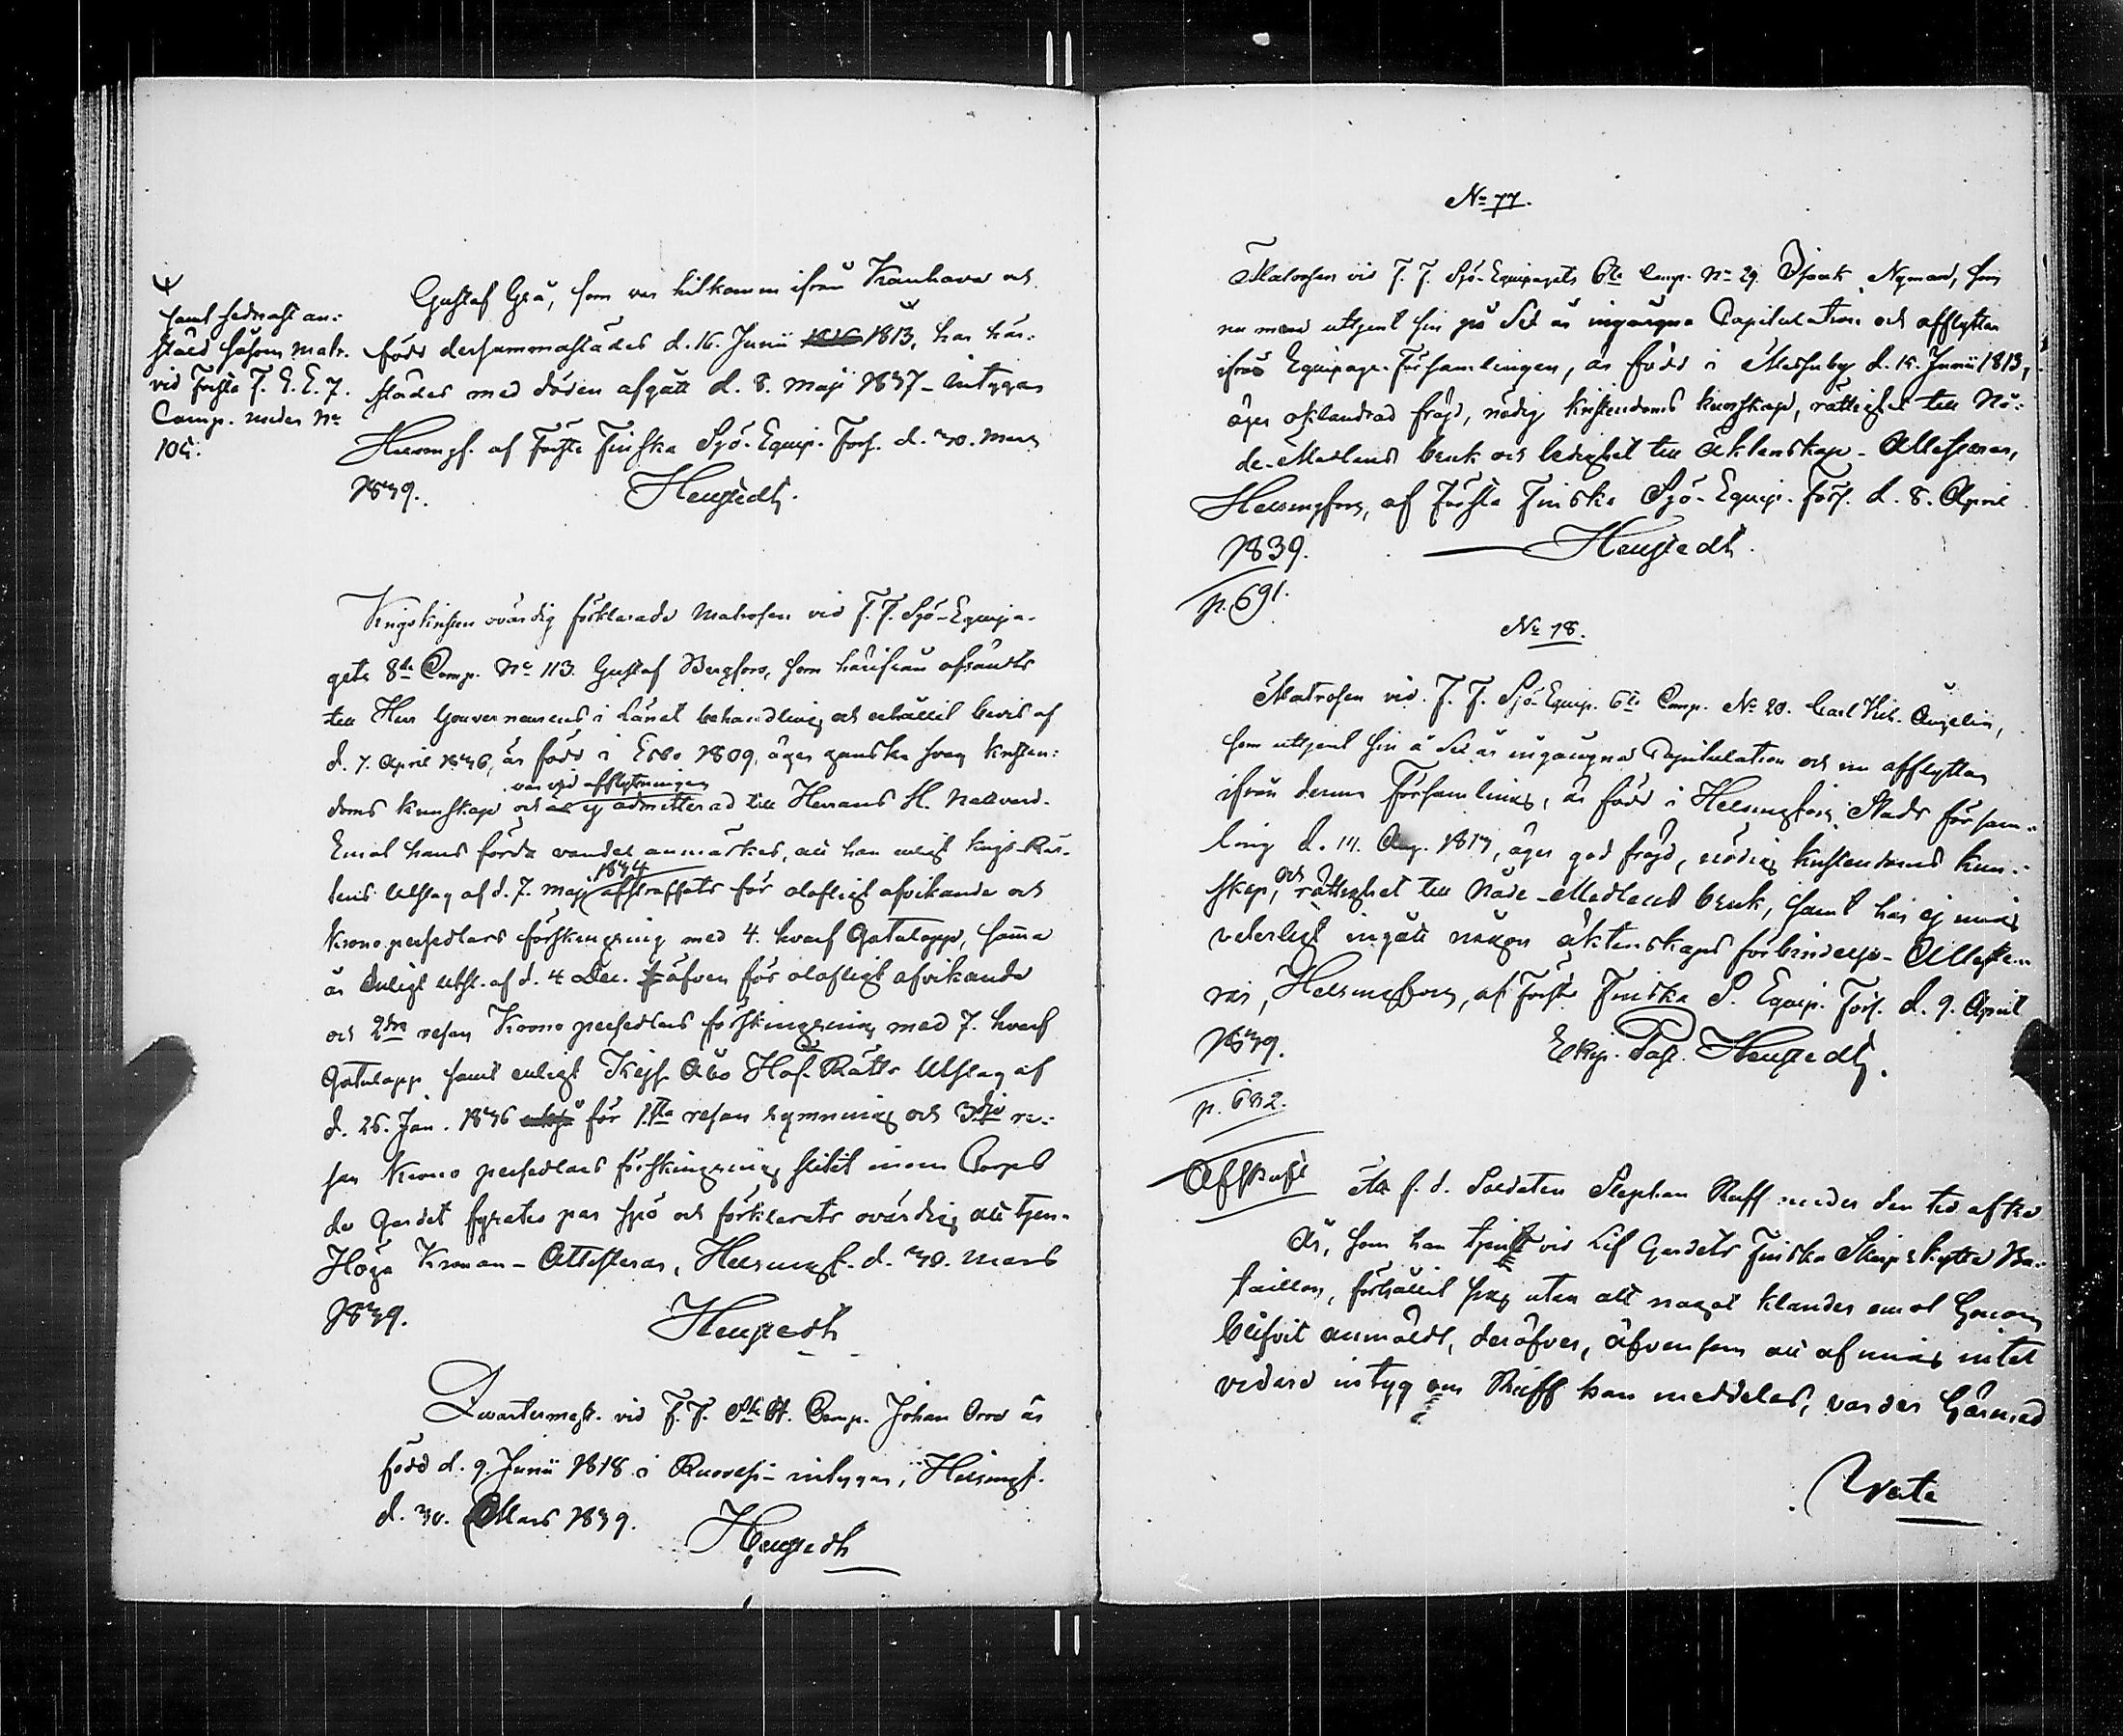 Gustaf Grå, som var hitkommen ifrån Kauhava och
född dersammastädes d. 16. Junii 1813, har här-
städes med döden afgått d. 8. Maji 1837 - intygas
Helsingf. af Första Finska Sjö-Equip. Förs. d. 30. Mars
1839. Heurstedt.
samt sednast an-
stäld såsom Matr.
vid Första F. S. E. 7.
Comp. under No
105.
Krigstjensten ovärdig förklarade Matrosen vid F. F. Sjö-Equipa-
gets 8de Comp. No 113. Gustaf Bergfors, som härifrån afsändts
till Herr Gouverneurens i Länet behandling och erhållit bevis af
d. 7. April 1836, är född i Esbo 1809, äger ganska svag kristen-
var vid afflyttningen
doms kunskap och är ej admitterad till Herrans H. Nattvard.
Emot hans förda vandel anmärkes, att han enligt Krigs-Rät-
1834
tens Utslag af d. 7. Maji afstraffats för olofligt afvikande och
Krono persedlars förskingring med 4. hvarf Gatulopp, samma
år Enligt Utsl. af d. 4 Dec. äfven för olofligt afvikande
och 2dra resan Krono persedlars förskingring med 7. hvarf
Gatulopp, samt enligt Kejs. Åbo Hof-Rätts Utslag af
d. 26. Jan. 1836 för 1sta resan rymning och 3dje re-
san Krono persedlars förskingring slitit inom Corps
de Gardet fyratio par spö och förklarats ovärdig att tjena
Höga Kronan - Attesteras, Helsingf. d. 30. Mars
1839. Heurstedt
Qvartermest. vid F. F. Comp. Johan Orre är
född d. 9. Junii 1818 i Ruovesi - intygas, Helsingf.
d. 30. Mars 1839. Heurstedt
No 77.
Matrosen vid F. F. Sjö-Equipagets 6te Comp. No 29. Isaak Nyman, som
nu mera uttjent sin på Sex år ingångna Capitulation och afflyttar
ifrån Equipage-Församlingen, är född i Messuby d. 15. Junii 1813,
äger oklandrad fräjd, nödig kristendoms kunskap, rättighet till Nå-
de-Medlens bruk och ledighet till äktenskap - Attesteras,
Helsingfors, af Första Finska Sjö-Equip. Förs. d. 8. April
1839. Heurstedt.
p. 691.
No 78.
Matrosen vid F. F. Sjö-Equip. 6te Comp. No 20. Carl Angelin,
som uttjent sin å Sex år ingångna Capitulation och nu afflyttar
ifrån denna Församling, är född i Helsingfors Stads försam-
ling d. 14. Aug. 1817, äger god fräjd, nödig Kristendoms kun-
skap, och rättighet till Nåde-Medlens bruk, samt har ej mig
veterligt ingått någon äktenskaps förbindelse - Atteste-
ras, Helsingfors, af Första Finska S. Equip. Förs. d. 9. April
1839. Equip. Past. Heurstedt.
p. 682.
Afskrift
Att f. d. Soldaten Stephan Ruff under den tid af tio
År, som han tjent vid Lif Gardets Finska Skarpskytte Ba-
taillon, förhållit sig utan att något klander emot honom
blifvit anmäldt, deröfver, äfvensom att af mig intet
vidare intyg om Ruff kan meddelas, varder härmed
Verte